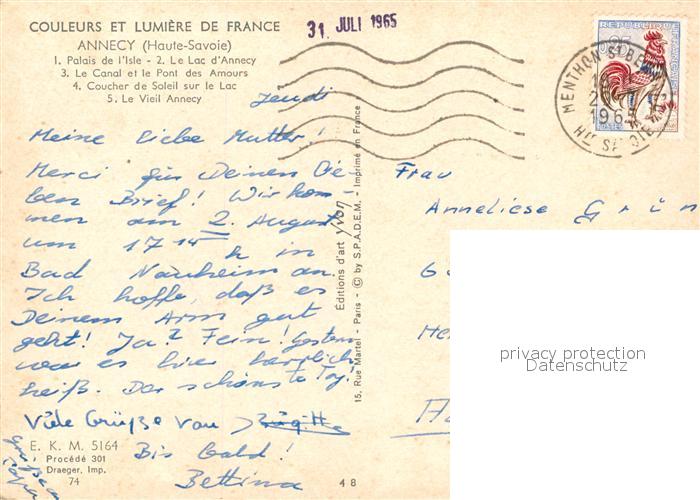 COULEURS ET LUMIÈRE DE FRANCE
ANNECY (Haute-Savoie)
1. Palais de l'Isle - 2. Le Lac d'Annecy
3. Le Canal et le Pont des Amours
4. Coucher de Soleil sur le Lac
5. Le Vieil Annecy
31. JULI 1965
MENTHON ST BERN
196
Hte SAVOIE
REPUBLIQUE FRANÇAISE
0,25
Jeudi
Meine liebe Mutter!
Merci für Deinen lie-
ben Brief! Wir kom-
men am 2. August
um 17 15 h in
Bad Nauheim an.
Ich hoffe, daß es
Deinem Arm gut
geht! Ja? Fein! Gestern
war es hier herrlich
heiß. Der schönste Tag!
Viele Grüße von Brigitte
Bis bald!
Bettina
E. K. M. 5164
Procédé 301
Draeger, Imp.
74
48
Éditions d'art yvon
15, Rue Martel - Paris - © by S.P.A.D.E.M. - Imprimé en France
Frau
Anneliese Grün
privacy protection
Datenschutz